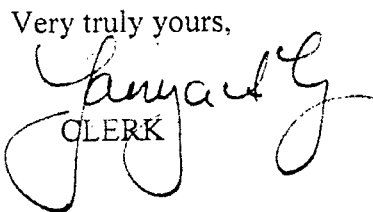 Very truly yours,
CLERK